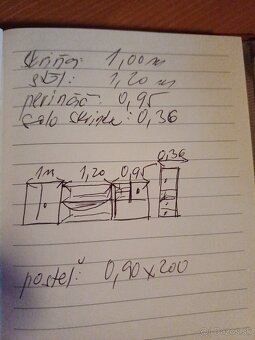 skriňa: 1,00 m
stôl: 1,20 m
perináč: 0,95
skrinka: 0,36
1m 1,20 0,95 0,36
posteľ: 0,90 x 200